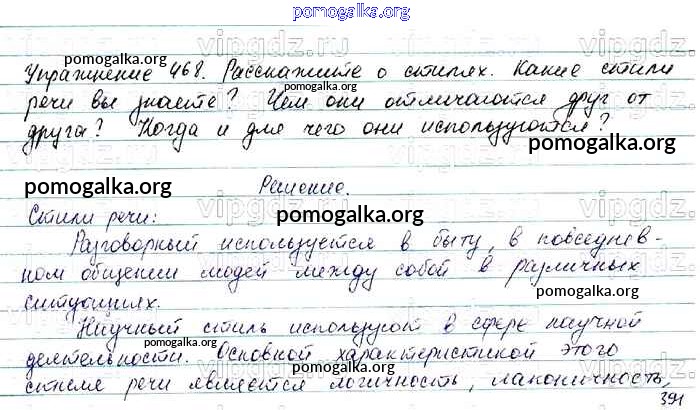 pomogalka.org
Упражнение 468. Расскажите о стилях. Какие стили
речи вы знаете? Чем они отличаются друг от
друга? Когда и для чего они используются?
pomogalka.org
Решение.
pomogalka.org
Стили речи:
pomogalka.org
Разговорный используется в быту, в повседнев-
ном общении людей между собой в различных
ситуациях.
pomogalka.org
Научный стиль используют в сфере научной
pomogalka.org
деятельности. Основной характеристикой этого
стиля речи является логичность, лаконичность,
pomogalka.org
391